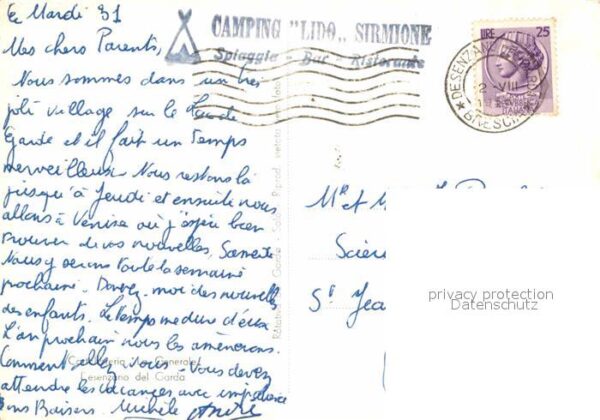 Le Mardi 31
Mes chers Parents,
Nous sommes dans un très
joli village sur le Lac de
Garde et il fait un temps
merveilleux. Nous restons là
jusqu'à Jeudi et ensuite nous
allons à Venise où j'espère bien
trouver de vos nouvelles,
Nous y serons toute la semaine
prochaine. Donnez-moi des nouvelles
des enfants. Le temps me dure d'eux
L'an prochain nous les amènerons.
Comment allez vous - Vous devez
attendre les vacances avec impatience
Bons Baisers. Michèle André
CAMPING "LIDO" SIRMIONE
Spiaggia - Bar - Ristorante
LIRE 25
DESENZANO DEL GARDA
2 - VIII
BRESCIA
Mr et
Scien
St Jea
privacy protection
Datenschutz
Cartoleria "La Generale"
Desenzano del Garda